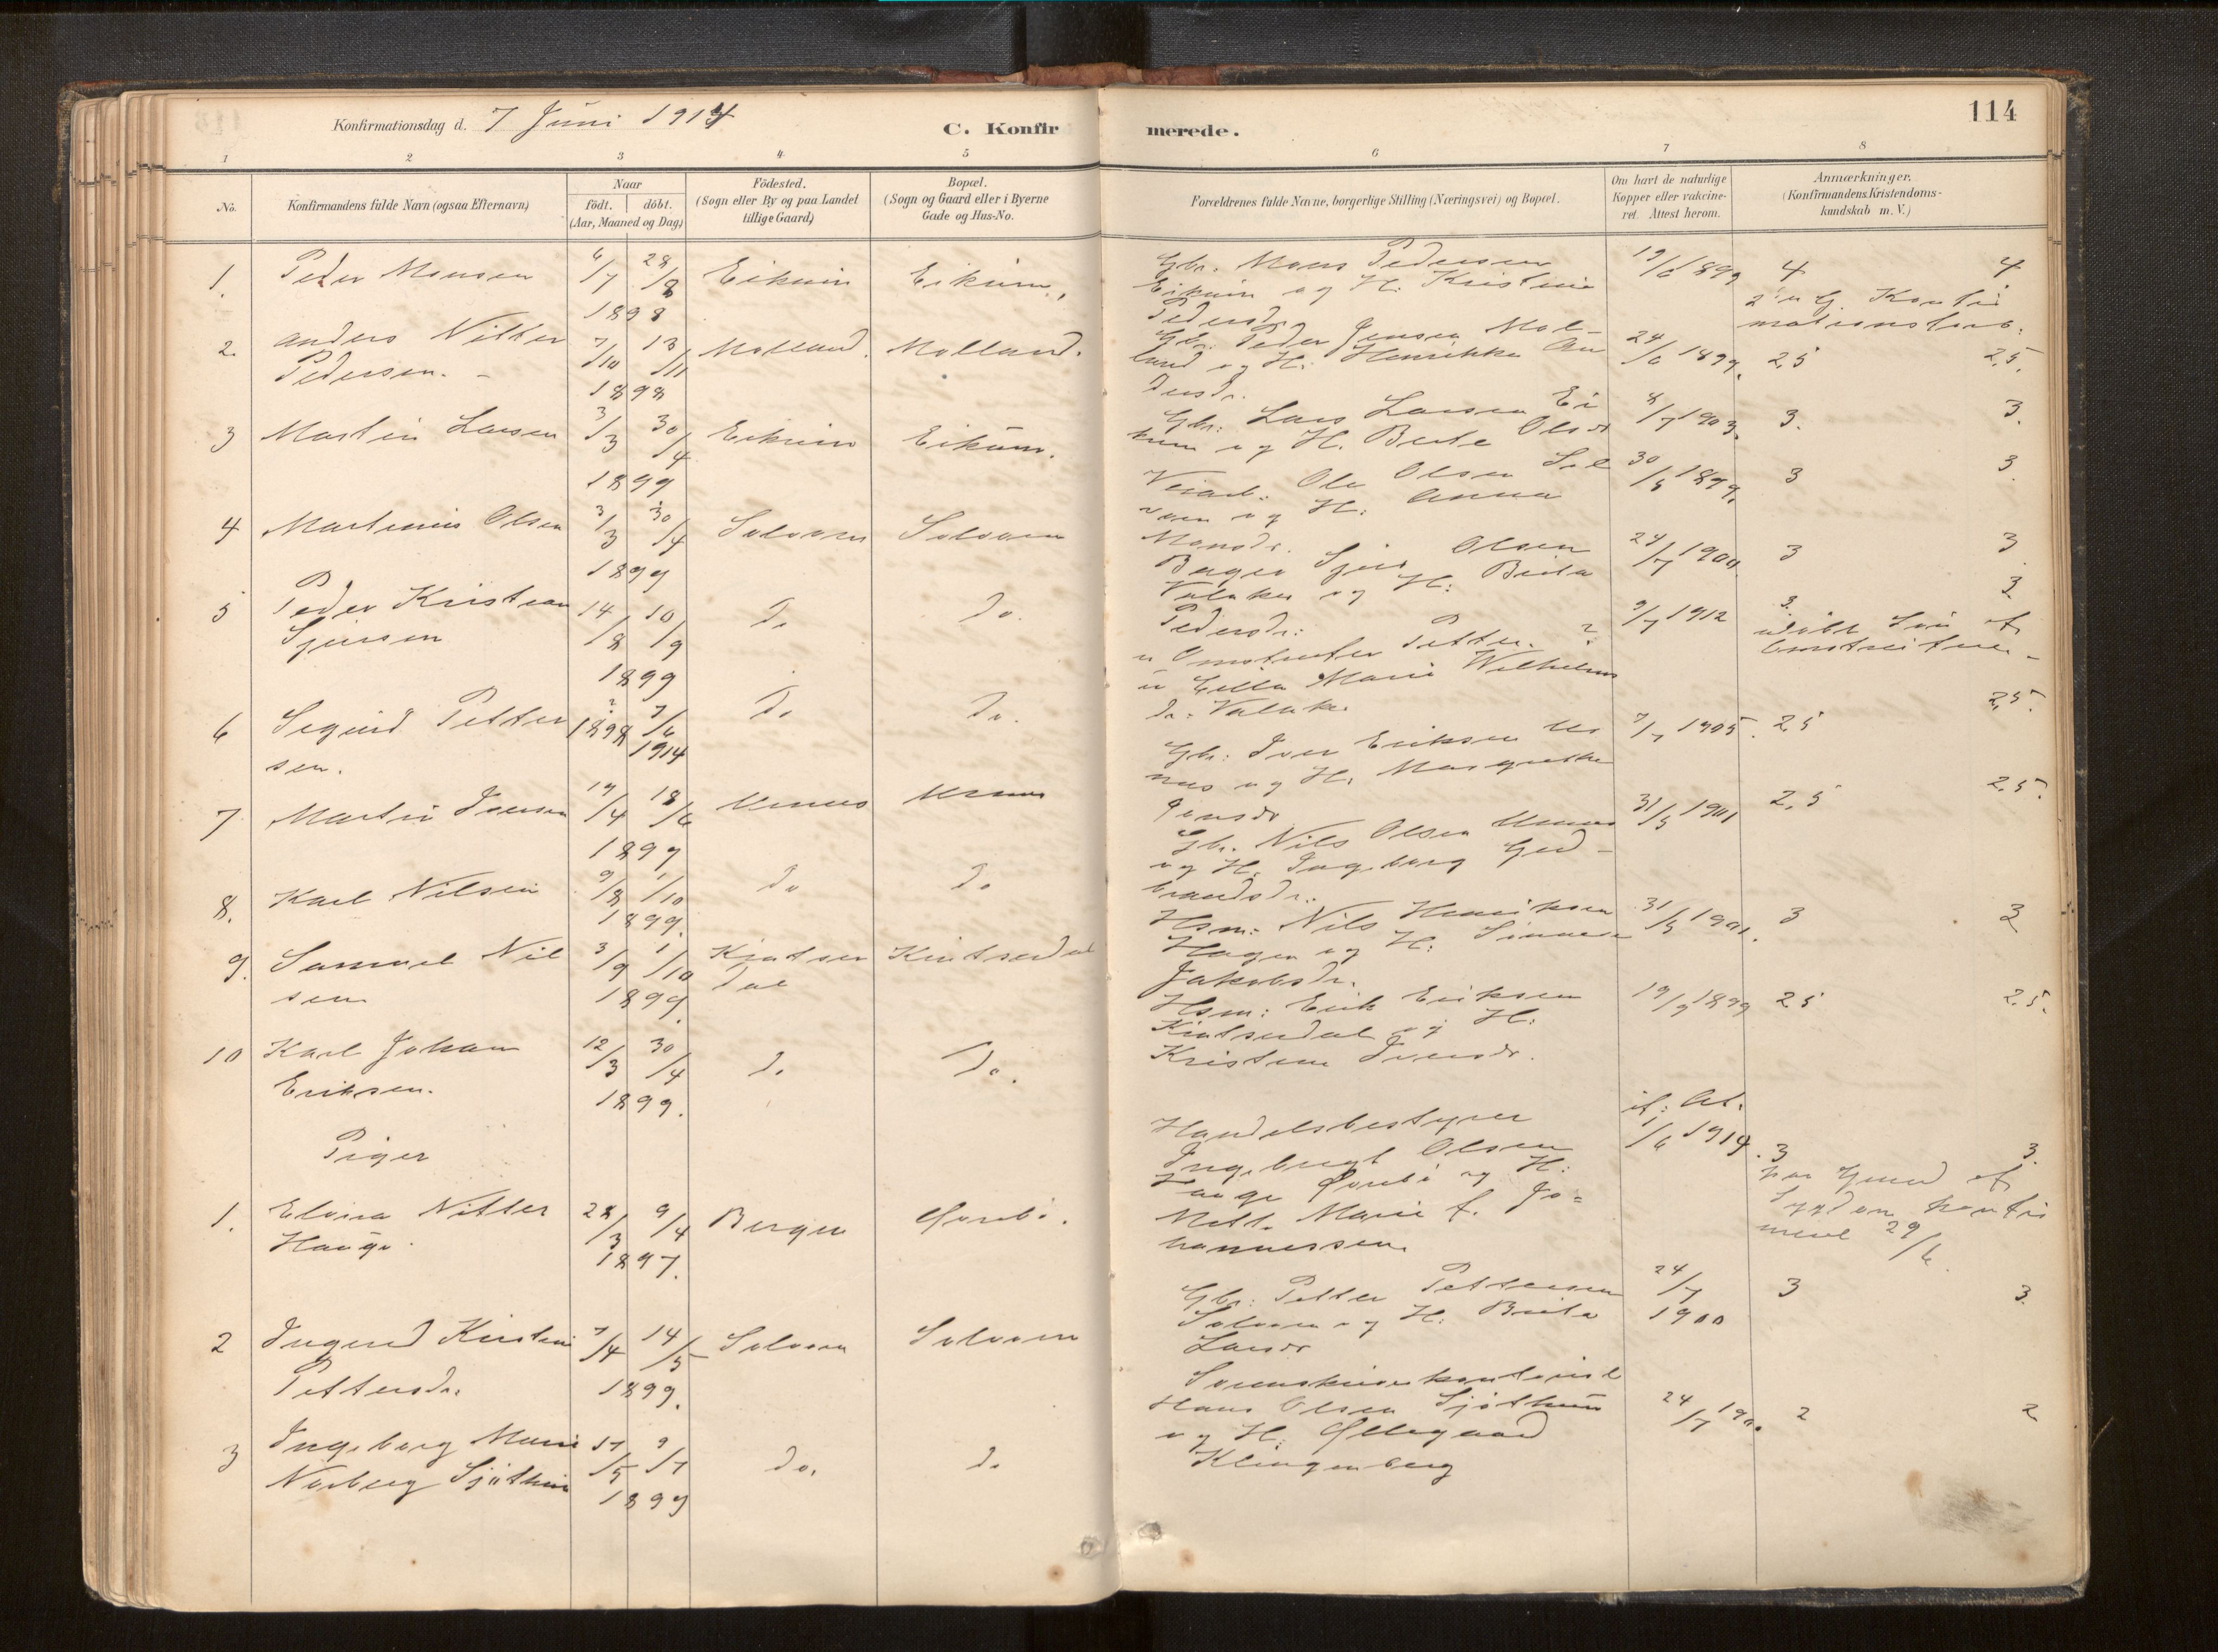 Konfirmationsdag d. 7 Juni 1914
C. Konfirmerede.
114
1 2 3 4 5 6 7 8
No.
Konfirmandens fulde Navn (ogsaa Efternavn)
Naar
födt. döbt.
(Aar, Maaned og Dag)
Födested.
(Sogn eller By og paa Landet
tillige Gaard)
Bopæl.
(Sogn og Gaard eller i Byerne
Gade og Hus-No.
Forældrenes fulde Navne, borgerlige Stilling (Næringsvei) og Bopæl.
Om havt de naturlige
Kopper eller vakcine-
ret. Attest herom.
Anmærkninger.
(Konfirmandens Kristendoms-
kundskab m. V.)
1. Peder Monsen 6/7 28/8 1898 Eikum Eikum.
Gbr. Mons Pedersen
Eikum og H. Kristine
Pedersdr.
19/6 1899 4 4
2. Anders Nitter
Pedersen. 7/10 13/11 1898 Molland. Molland.
Gbr. Peder Jensen Mol-
land og H. Henrikka An
dersdr.
24/6 1899. 2,5 2,5.
3 Martin Larsen 3/3 30/4 1899 Eikum Eikum.
Gbr. Lars Larsen Ei
kum og H. Berte Olsdr
8/7 1903. 3. 3.
4 Martinus Olsen 3/3 30/4 1899 Solvorn Solvorn
Veiarb. Ole Olsen Sol
vorn og H. Anna
Monsdr.
30/5 1899. 3 3.
5 Peder Kristian
Sjursen 14/8 10/9 1899 do do.
Bager Sjur Olsen
Valaker og H: Brita
Pedersdr:
24/7 1900. 3 3
6 Sigurd Petter
sen. ? 1898 7/6 1914 do do.
u Omstreifer Petter. ?
u Ella Marie Wilhelms
dr. Valaker
9/7 1912 3. 3.
udöbt Sön af
Omstreifere-
7 Martin Iversen 19/4 18/6 1899 Urnes Urnes
Gbr. Iver Eriksen Ur
nes og H. Margrethe
Jensdr
7/7 1905. 2,5 2,5.
8. Karl Nilsen 9/8 1/10 1899. do do
Gbr. Nils Olsen Urnes
og H. Ingeborg Gud-
brandsdr.
31/5 1901 2,5 2,5.
9. Samuel Nil
sen 3/9 1/10 1899. Kinser
dal Kinserdal
Hsm: Nils Henriksen
Hagen og H:
Jakobsdr.
31/5 1901. 3 3
10 Karl Johan
Eriksen. 12/3 30/4 1899. do do.
Hsm: Erik Eriksen
Kinserdal og H:
Kristine Iversdr.
19/9 1899 2,5 2,5.
Piger
1. Elvira Nitter
Hauge. 28/3 9/4 1897. Bergen
Handelsbestyrer
Ingebrigt Olsen
Hauge og H:
Mette Marie f. Jo=
hannessen.
if: At.
1/6 1914. 3 3.
paa Grund af
Sygdom konfir
meret 29/6
2 Ingerd Kristine
Pettersdr. 7/4 14/5 1899. Solvorn Solvorn
Gbr: Petter Pettersen
Solvorn og H. Brita
Larsdr
24/7 1900 3 3.
3 Ingeborg Marie
Norberg Sjøthun 17/5 9/7 1899 do. do
Sorenskriverkontorist
Hans Olsen Sjøthun
og H: Øllegaard
Klingenberg
24/7 1900. 2 2